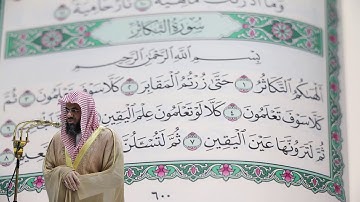 وَمَا أَدْرَىٰكَ مَا هِيَهْ ۝ نَارٌ حَامِيَةٌ
سُورَةُ التَّكَاثُرِ
بِسْمِ اللَّهِ الرَّحْمَٰنِ الرَّحِيمِ
أَلْهَىٰكُمُ التَّكَاثُرُ ۝١ حَتَّىٰ زُرْتُمُ الْمَقَابِرَ ۝٢ كَلَّا سَوْفَ تَعْلَمُونَ ۝٣ ثُمَّ
كَلَّا سَوْفَ تَعْلَمُونَ ۝٤ كَلَّا لَوْ تَعْلَمُونَ عِلْمَ الْيَقِينِ
ثُمَّ لَتَرَوُنَّهَا عَيْنَ الْيَقِينِ ۝٧ ثُمَّ لَتُسْـَٔلُنَّ ۝٨
٦٠٠